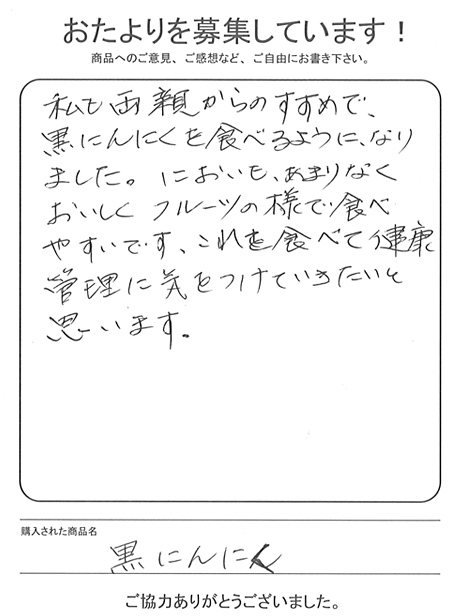 おたよりを募集しています！
商品へのご意見、ご感想など、ご自由にお書き下さい。
私も両親からのすすめで、
黒にんにくを食べるように、なり
ました。においも、あまりなく
おいしくフルーツの様で食べ
やすいです、これを食べて健康
管理に気をつけていきたいと
思います。
購入された商品名
黒にんにく
ご協力ありがとうございました。